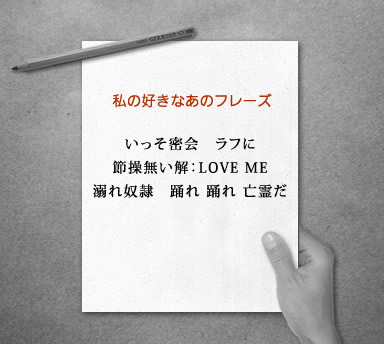 私の好きなあのフレーズ
いっそ密会　ラフに
節操無い解：LOVE ME
溺れ奴隷　踊れ 踊れ 亡霊だ